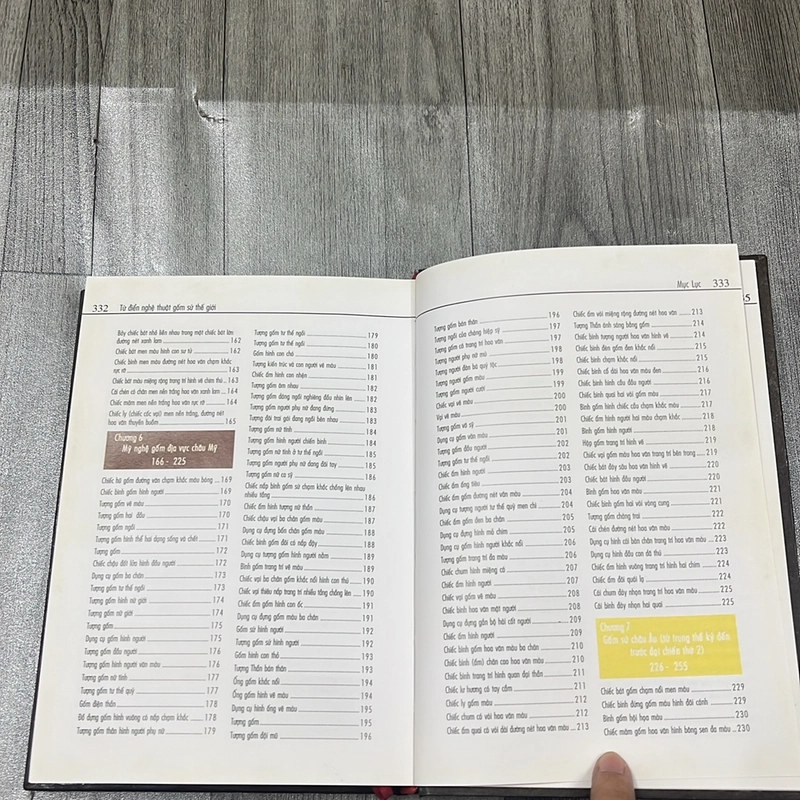 332 Từ điển nghệ thuật gốm sứ thế giới
Bảy chiếc bát nhỏ liền nhau trong một chiếc bát lớn
đường nét xanh lam 162
Chiếc bát men màu hình con sư tử 162
Chiếc bình men màu đường nét hoa văn chạm khắc
rực rỡ 163
Chiếc bát màu miệng rộng trang trí hình vẽ chim thú 163
Cái chén có chân men nền trắng hoa văn xanh lam 164
Chiếc mâm men nền trắng hoa văn rực rỡ 164
Chiếc ly (chiếc cốc vại) men nền trắng, đường nét
hoa văn thuyền buồm 165
Chương 6
Mỹ nghệ gốm địa vực châu Mỹ
166 - 225
Chiếc hũ gốm đường vân chạm khắc màu bóng 169
Chiếc bình gốm hình người 169
Tượng gốm vẽ màu 170
Tượng gốm hai đầu 170
Tượng gốm ngồi 171
Tượng gốm hình thể hai dạng sống và chết 171
Tượng gốm 172
Chiếc chậu đốt lửa hình đầu người 172
Dụng cụ gốm ba chân 173
Tượng gốm tư thế ngồi 173
Tượng gốm nữ giới 174
Tượng gốm nữ giới 174
Tượng gốm 175
Dụng cụ gốm hình người 175
Tượng gốm đầu người 176
Tượng gốm hình người vẽ màu 176
Tượng gốm nữ tính 177
Tượng gốm tư thế quỳ 177
Gốm điện thần 178
Đồ đựng gốm hình vuông có nắp chạm khắc 178
Tượng gốm thân hình người phụ nữ 179
Tượng gốm tư thế ngồi 179
Tượng gốm tư thế ngồi 180
Gốm hình con chó 180
Tượng kiến trúc và con người vẽ màu 181
Chiếc ấm hình con nhện 181
Tượng gốm ôm nhau 182
Tượng gốm dáng ngồi nghiêng đầu nhìn lên 182
Tượng gốm người phụ nữ đang đứng 183
Tượng đôi trai gái đang ngồi bên nhau 183
Tượng gốm nữ tính 184
Tượng gốm hình người chiến binh 184
Tượng gốm nữ tính ở tư thế ngồi 185
Tượng gốm người phụ nữ đang đối tay 185
Tượng gốm nữ ca sỹ 186
Chiếc nắp bình gốm sứ chạm khắc chồng lên nhau
nhiều tầng 186
Chiếc ấm gốm hình tượng nữ thần 187
Chiếc chậu vại ba chân gốm màu 187
Dụng cụ đựng bốn chân gốm màu 188
Chiếc bình gốm đôi có nắp đậy 188
Dụng cụ tượng gốm hình người nằm 189
Bình gốm trang trí vẽ màu 189
Chiếc vại ba chân gốm khắc nổi hình con thú 190
Chiếc vại thiêu nắp trang trí nhiều tầng chồng lên 190
Chiếc ấm gốm hình con ốc 191
Dụng cụ đựng gốm màu ba chân 191
Gốm sứ hình người 192
Tượng gốm sứ hình người 192
Gốm hình con thỏ 193
Tượng Thần bán thân 193
Ống gốm khắc nổi 194
Ống gốm hình vẽ màu 194
Dụng cụ hình ống vẽ màu 195
Tượng gốm 195
Tượng gốm đội mũ 196
Mục Lục 333
Tượng gốm bán thân 196
Tượng ngồi của chàng hiệp sỹ 197
Tượng gốm có trang trí hoa văn 197
Tượng người phụ nữ mũ 198
Tượng người đàn bà quý tộc 198
Tượng người gốm màu 199
Tượng gốm người cười 199
Chiếc vại vẽ màu 200
Vại vẽ màu 200
Tượng gốm võ sỹ 201
Dụng cụ gốm vân màu 201
Tượng gốm đầu người 202
Tượng gốm tư thế ngồi 202
Chiếc ấm gốm hình người 203
Chiếc ấm ống tiêu 203
Chiếc ấm gốm đường nét vân màu 204
Dụng cụ tượng người tư thế quỳ men chì 204
Chiếc ấm gốm đen ba chân 205
Dụng cụ đựng gốm hình mỏ chim 205
Dụng cụ gốm hình người khắc nổi 206
Tượng gốm trang trí đa màu 206
Chiếc chum hình miệng cá 207
Chiếc ấm hình người 207
Chiếc vại gốm vẽ màu 208
Chiếc bình hoa văn mặt người 208
Dụng cụ đựng gắn bộ hài cốt người 209
Chiếc ấm hình người 209
Chiếc bình gốm hoa văn màu ba chân 210
Chiếc bình (ấm) chân cao hoa văn màu 210
Chiếc bình trang trí hình quan đại thần 211
Chiếc lư hương có tay cầm 211
Chiếc ly gốm màu 212
Chiếc chum cá voi hoa văn màu 212
Chiếc ấm quai có vòi dài đường nét hoa văn màu 213
Chiếc ấm vòi miệng rộng đường nét hoa văn 213
Tượng Thần ánh sáng bằng gốm 214
Chiếc bình tượng người hoa văn hình vẽ 214
Chiếc bình đèn gốm đen khắc nổi 215
Chiếc bình chạm khắc nổi 215
Chiếc bình cổ dài hoa văn màu đơn 216
Chiếc bình gốm hình cầu đầu người 216
Chiếc bình quai hai vòi gốm màu 217
Bình gốm hình chiếc cầu chạm khắc màu 217
Chiếc ấm gốm hình người hai màu chạm khắc 218
Bình gốm hình người 218
Hộp gốm trang trí hình vẽ 219
Chiếc vại gốm màu hoa văn trang trí bên trong 219
Chiếc bát đáy sâu hoa văn hình vẽ 220
Chiếc bát hình đầu người 220
Bình gốm hoa văn màu 221
Chiếc bình gốm hai vòi vòng cung 221
Tượng gốm chàng trai 222
Cái chén đường nét hoa văn màu 222
Dụng cụ hình cái bàn chân trang trí hoa văn màu 223
Dụng cụ hình đầu con dã thú 223
Chiếc ấm hình vuông trang trí hình hai chim 224
Chiếc ấm đôi quái lạ 224
Cái chum đáy nhọn trang trí hoa văn màu 225
Cái bình đáy nhọn hai quai 225
Chương 7
Gốm sứ châu Âu (từ trung thế kỷ đến
trước đại chiến thứ 2)
226 - 255
Chiếc bát gốm chạm nổi men màu 229
Chiếc bình đứng gốm màu hình đôi cánh 229
Bình gốm hội họa màu 230
Chiếc mâm gốm hoa văn hình bông sen đa màu 230